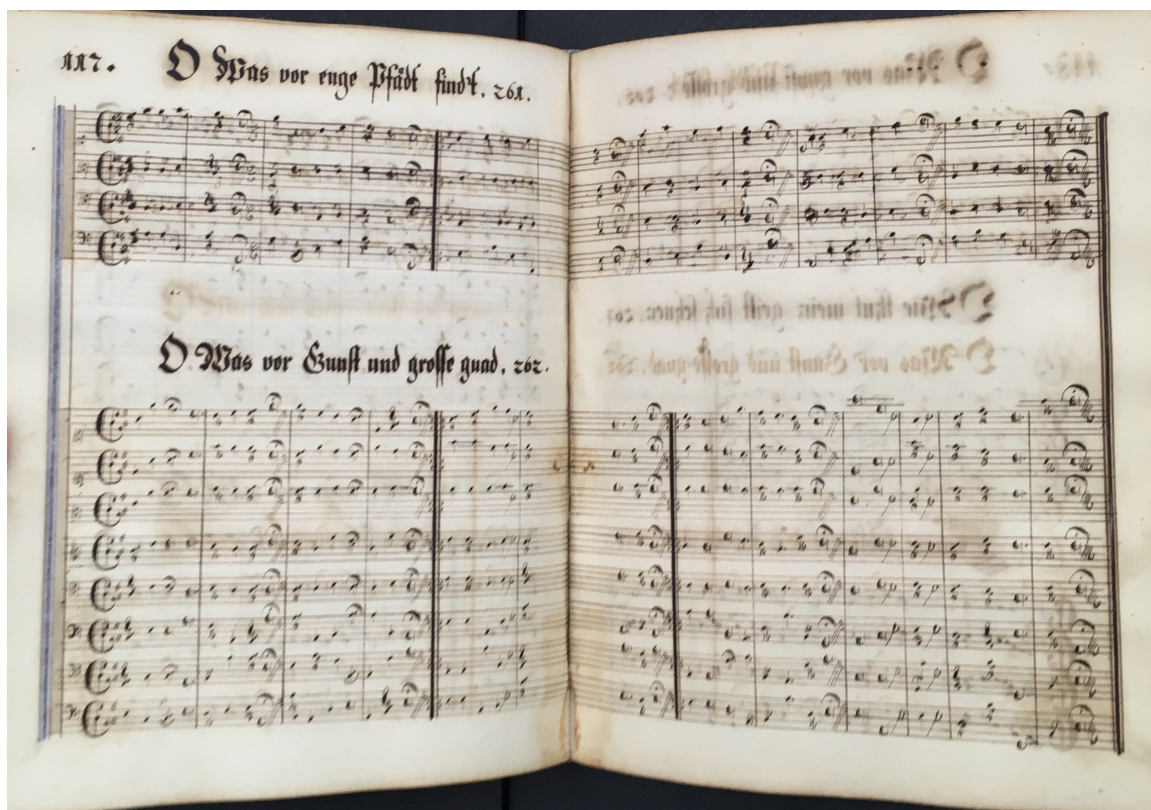 117.
O Was vor enge Pfädt findt. 261.
O Was vor Gunst und grosse gnad. 262.